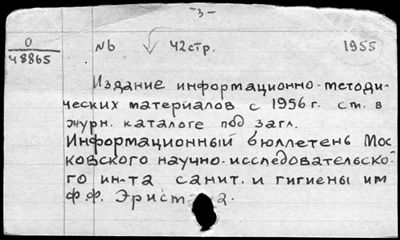 -3-
0
48865
N6
42стр.
1955
Издание информационно-методи-
ческих материалов с 1956 г. см. в
журн. каталоге под загл.
Информационный бюллетень Мос
ковского научно-исследовательско-
го ин-та санит. и гигиены им
Ф.Ф.